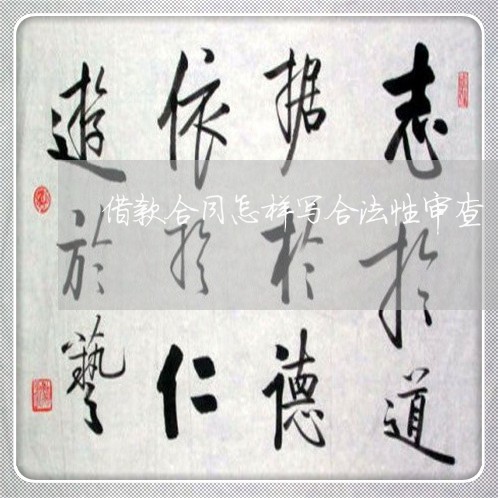 志於道
据於德
依於仁
遊於藝
借款合同怎样写合法性审查